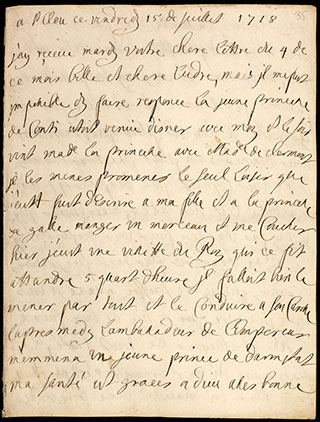 a St Clou ce vendredi 15 de juillet 1718
35
j'ay receue mardy vostre chere lettre du 9 de
ce mois belle et chere Ludre, mais il m'a esté
impossible dy faire responce la jeune princesse
de Conti estoit venue disner avec moy et le soir
vint mad la princesse avec Mad de clermont
je les menes promener le seul loisir que
j'eust fust d'escrire a ma fille et a la princesse
de galle manger un morceau et me coucher
hier j'eust une visitte du Roy qui ce fit
attandre 5 quart d'heure jl falloit bien le
mener par tout et le conduire a son carosse
l'apres medy l'ambassadeur de l'Empereur
m'emmena un jeune prince de darmstat
ma santé est graces a dieu asses bonne